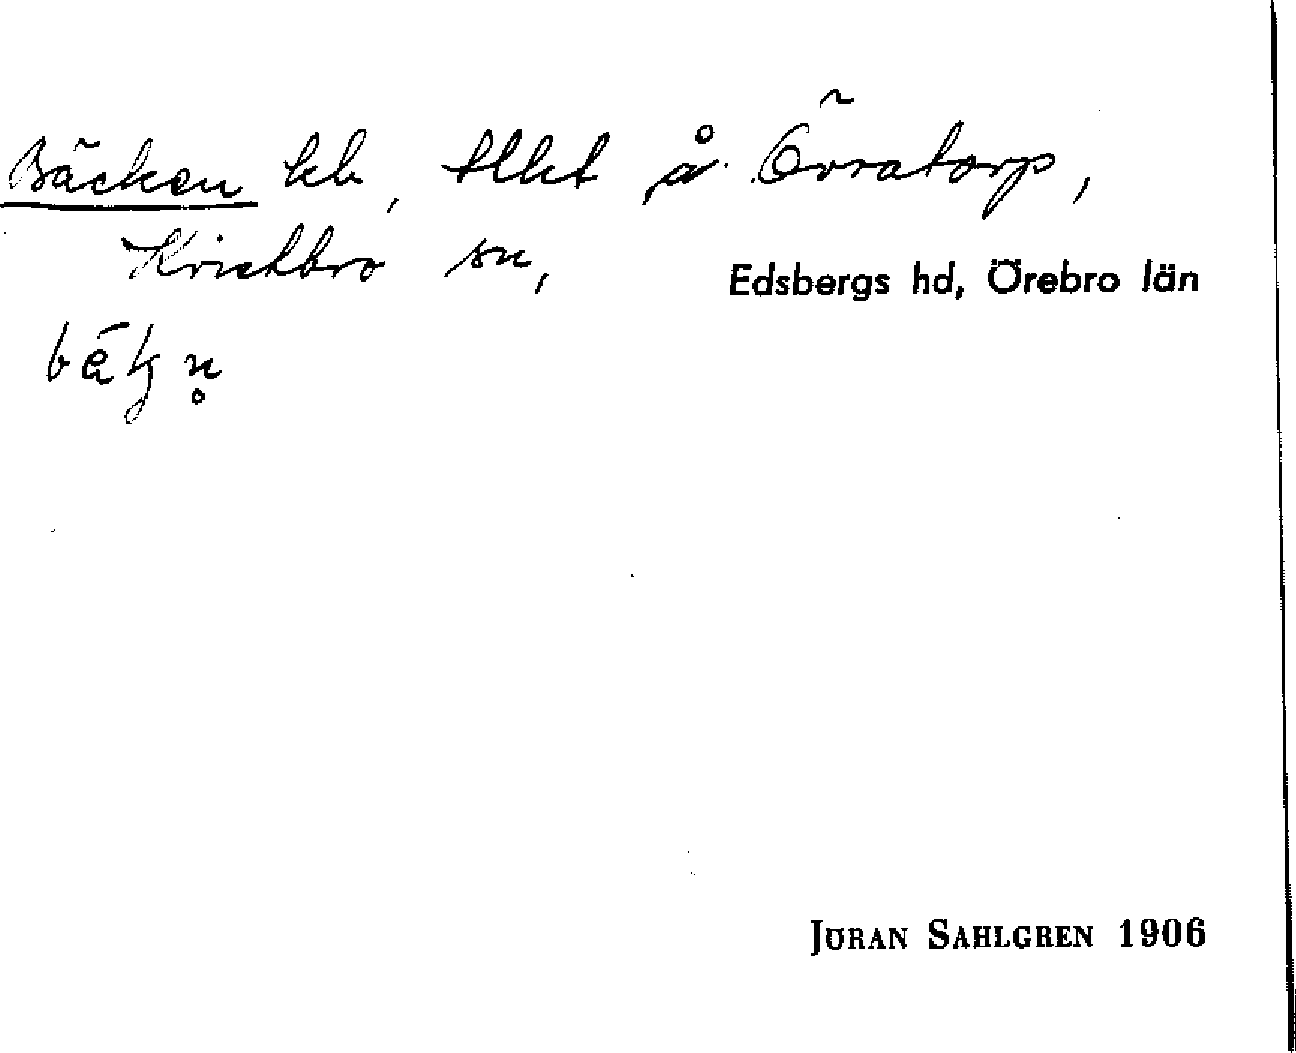 Bäcken hb, tllht å Övratorp,
Knistbro sn, Edsbergs hd, Örebro län
JÖRAN SAHLGREN 1906